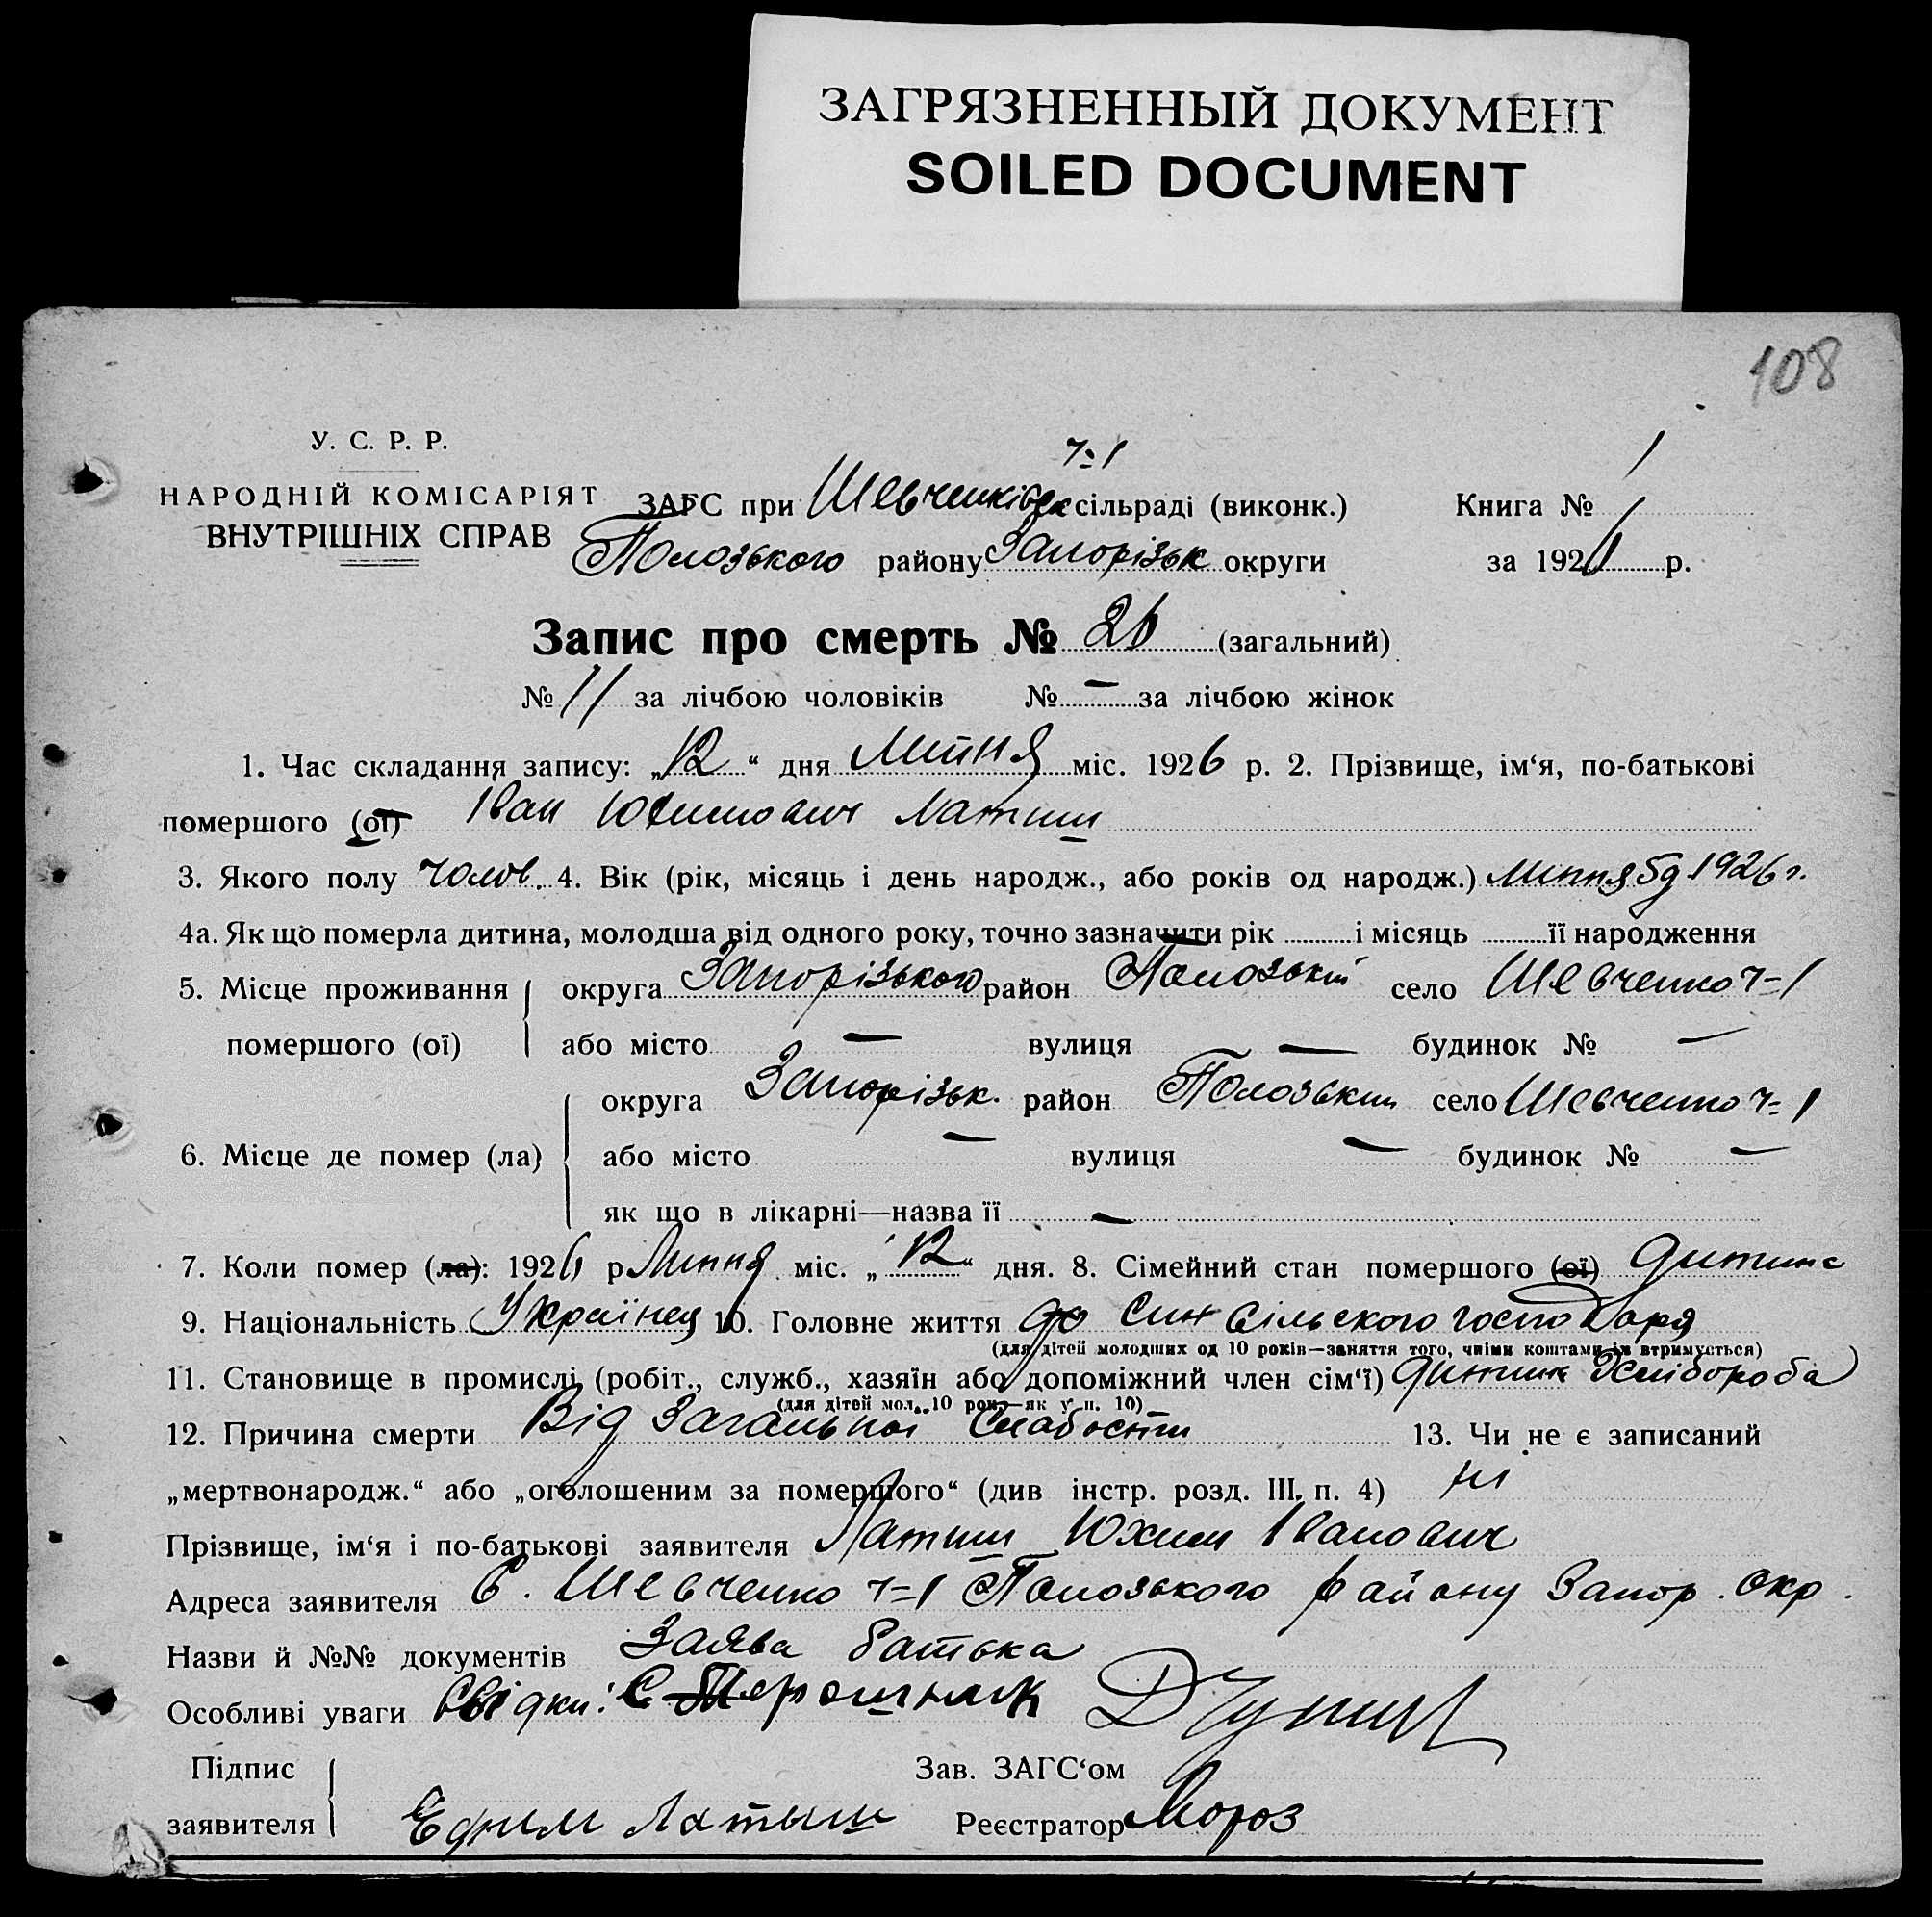 ЗАГРЯЗНЕННЫЙ ДОКУМЕНТ
SOILED DOCUMENT
108
У. С. Р. Р.
НАРОДНІЙ КОМІСАРІЯТ
ВНУТРІШНІХ СПРАВ
ч=1
ЗАГС при Шевченківськ сільраді (виконк.) Книга № 1
Полозького району Запорізьк округи за 1926 р.
Запис про смерть № 26 (загальний)
№ 11 за лічбою чоловіків № — за лічбою жінок
1. Час складання запису: „12“ дня Липня міс. 1926 р. 2. Прізвище, ім‘я, по-батькові
помершого (ої) Іван Юхимович Латиш
3. Якого полу чолов. 4. Вік (рік, місяць і день народж., або років од народж.) Липня 5д 1926 г.
4а. Як що померла дитина, молодша від одного року, точно зазначити рік — і місяць ......... її народження
5. Місце проживання округа Запорізького район Полозький село Шевченко ч=1
помершого (ої) або місто — вулиця — будинок № —
округа Запорізьк. район Полозький село Шевченко ч=1
6. Місце де помер (ла) або місто — вулиця — будинок № —
як що в лікарні—назва її —
7. Коли помер (ла): 1926 р Липня міс. „12“ дня. 8. Сімейний стан помершого (ої) дитина
9. Національність Українец 10. Головне життя Син сільского господаря
(для дітей молодших од 10 років—заняття того, чиїми коштами їх втримується)
11. Становище в промислі (робіт., служб., хазяїн або допоміжний член сім‘ї) дитина хлібороба
(для дітей мол. 10 рок.—як у п. 10)
12. Причина смерти Від Загальної Слабости 13. Чи не є записаний
„мертвонародж.“ або „оголошеним за помершого“ (див інстр. розд. III. п. 4) ні
Прізвище, ім‘я і по-батькові заявителя Латиш Юхим Іванович
Адреса заявителя С. Шевченко ч=1 Полозького району Запор. Окр.
Назви й №№ документів Заява батька
Особливі уваги Свідки:
Підпис Зав. ЗАГС‘ом
заявителя Ефим Латыш Реєстратор Мороз